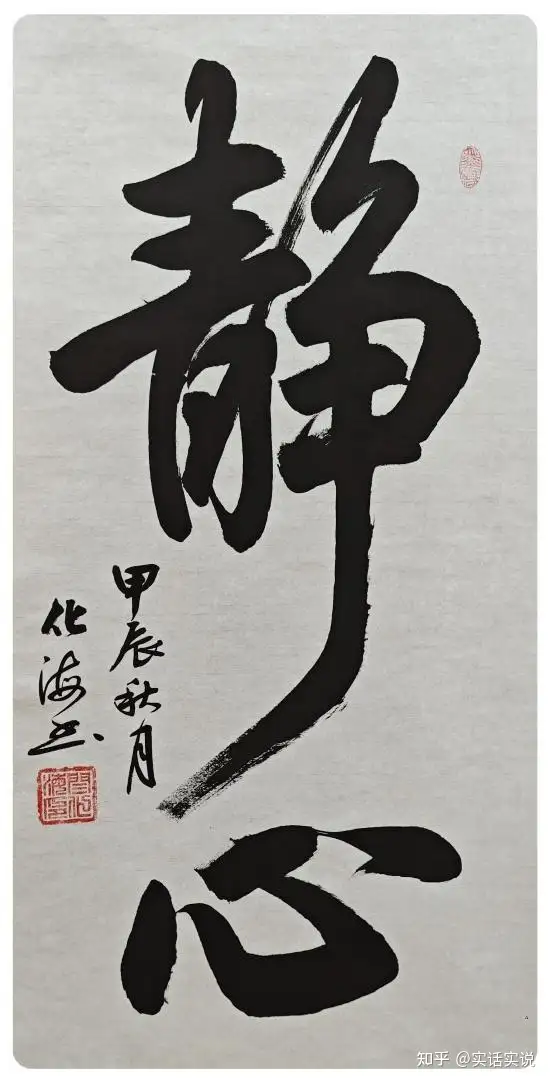 静心
甲辰秋月
化海书
知乎 @实话实说